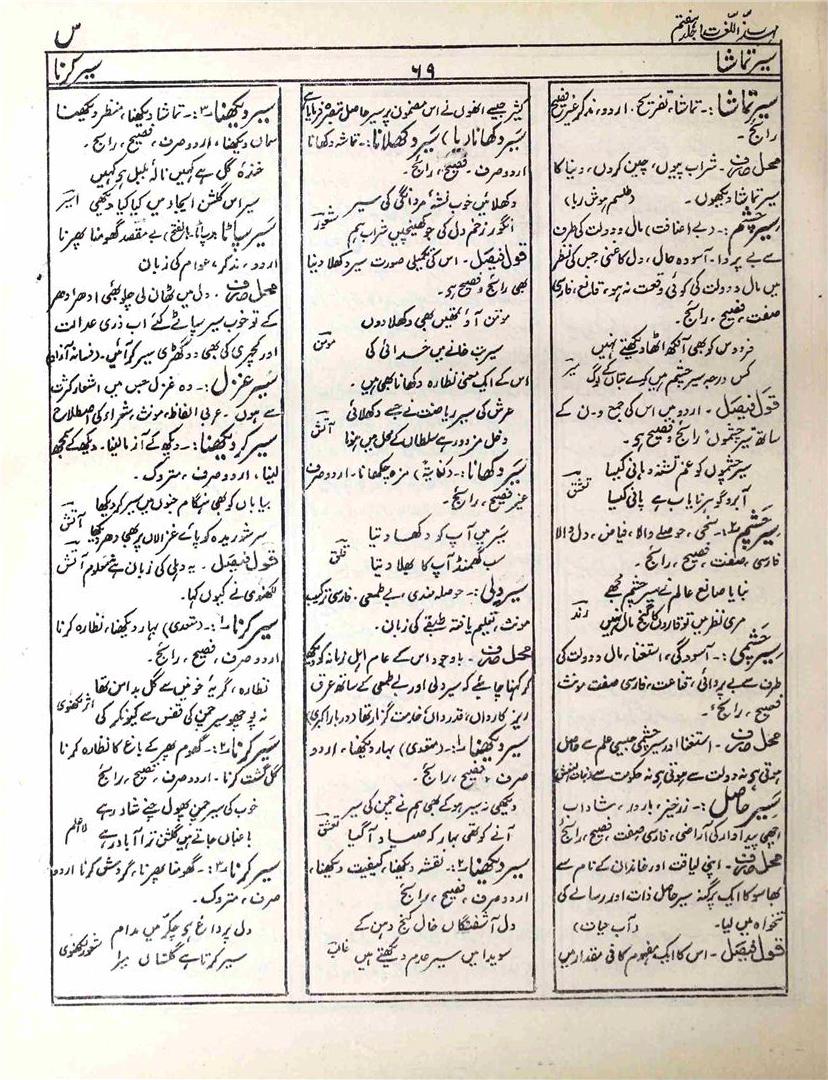 مہذب اللغات جلد ہفتم
س
سیر تماشا
۶۹
سیر کرنا
سیر تماشا:۔ تماشا، تفریح۔ اردو، مذکر غیر فصیح
رائج۔
محل صرف۔ شراب پیوں، چین کروں، دنیا کا
سیر تماشا دیکھوں۔ (طلسم ہوش ربا)
سیر چشم:۔ (بے اضافت) مال و دولت کی طرف
سے بے پروا۔ آسودہ حال، دل کا غنی جس کی نظر
میں مال و دولت کی کوئی وقعت نہ ہو، قانع، فارسی
صفت، فصیح، رائج۔
فردوس کو بھی آنکھ اٹھا دیکھتے نہیں
کس درجہ سیر چشم ہیں کوئے بتاں کے لوگ میر
قول فیصل۔ اردو میں اس کی جمع و۔ن کے
ساتھ سیر چشموں رائج و فصیح ہے۔
سیر چشموں کو غم تشنہ دہانی کیسا
آبرو گوہر نایاب ہے پانی کیسا تعشق
سیر چشم ۲:۔ سخی، حوصلے والا، فیاض، دل والا
فارسی، صفت، فصیح، رائج۔
بنایا صانع عالم نے سیر چشم مجھے
مری نظر میں تو قاروں کا گنج مال نہیں رند
سیر چشمی:۔ آسودگی، استغنا، مال و دولت کی
طرف سے بے پروائی، قناعت، فارسی صفت مونث
فصیح، رائج۔
محل صرف۔ استغنا اور سیر چشمی جیسی علم سے حاصل
ہوتی ہے نہ دولت سے ہوتی ہے نہ حکومت سے (بنات النعش)
سیر حاصل:۔ زرخیز، بارور، شاداب
اچھی پیداوار کی آراضی، فارسی صفت، فصیح، رائج
محل صرف۔ اپنی لیاقت اور خاندان کے نام سے
بھاسو کا ایک پرگنہ سیر حاصل ذات اور رسالے کی
تنخواہ میں لیا۔ (آب حیات)
قول فیصل۔ اس کا ایک مفہوم کافی مقدار میں
کثیر جیسے انھوں نے اس مضمون پر سیر حاصل تبصرہ فرمایا ہے
سیر دکھانا (یا) سیر دکھلانا:۔ تماشہ دکھانا
اردو صرف۔ فصیح، رائج۔
دکھلائیں خوب نشۂ مردانگی کی سیر
انگور زخم دل کی جو کھینچیں شراب ہم شعور
قول فیصل۔ اس کی تکمیلی صورت سیر دکھلا دینا
بھی رائج و فصیح ہے۔
مومن آؤ تمہیں بھی دکھلا دوں
سیر بت خانے میں خدائی کی مومن
اس کے ایک معنی نظارہ دکھانا بھی ہیں۔
عرش کی سیر ریاضت نے جسے دکھلائی
دخل مزدور ہے سلطاں کے محل میں ہوتا آتش
سیر دکھانا:۔ (کنایۃً) مزہ چکھانا۔ اردو صرف
غیر فصیح، رائج۔
سیر میں آپ کو دکھا دیتا
سب گھمنڈ آپ کا بھلا دیتا قلق
سیر دلی:۔ حوصلہ مندی، بے طمعی۔ فارسی ترکیب
مونث، تعلیم یافتہ طبقے کی زبان۔
محل صرف۔ باوجود اس کے عام اہل زمانہ کو دیکھ
کر کہنا چاہئے کہ سیر دلی اور بے طمعی کے ساتھ عرق
ریز کارداں، قدرداں خدمت گزار تھا (دربار اکبری)
سیر دیکھنا ۱:۔ (متعدی) بہار دیکھنا، اردو
صرف، فصیح، رائج۔
دیکھی نہ سیر ہو کے بھی ہم نے چمن کی سیر
آنے کو تھی بہار کہ صیاد آگیا تعشق
سیر دیکھنا ۲:۔ نقشہ دیکھنا، کیفیت دیکھنا،
اردو صرف، فصیح، رائج
دل آشفتگاں خال کنج دہن کے
سویدا میں سیر عدم دیکھتے ہیں غالب
سیر دیکھنا ۳:۔ تماشا دیکھنا، منظر دیکھنا
سماں دیکھنا، اردو صرف، فصیح، رائج۔
خندۂ گل ہے کہیں نالۂ بلبل ہے کہیں
سیر اس گلشن ایجاد میں کیا کیا دیکھی اسیر
سیر سپاٹا: (بفتح) بے مقصد گھومنا پھرنا
اردو، مذکر، عوام کی زبان
محل صرف۔ دل میں ٹھان لی چلو بھی ادھر ادھر
کے تو خوب سیر سپاٹے کئے اب ذری عدالت
اور کچہری کی بھی دو گھڑی سیر کر آئیں۔ (فسانۂ آزاد)
سیر غزل:۔ وہ غزل جس میں اشعار کثرت
سے ہوں۔ عربی الفاظ، مونث، شعراء کی اصطلاح
سیر کر دیکھنا:۔ دیکھ کے آزما لینا۔ دیکھ کے سمجھ
لینا، اردو صرف، متروک۔
بیاباں کو بھی ہنگام جنوں میں سیر کر دیکھا
سر شوریدہ کو پائے غزالاں پر بھی دھر دیکھا آتش
قول فیصل۔ یہ دہلی کی زبان ہے معلوم آتش
لکھنوی نے کیوں کہا۔
سیر کرنا ۱:۔ (متعدی) بہار دیکھنا، نظارہ کرنا
اردو صرف، فصیح، رائج۔
نظارہ، گریۂ خونیں سے گل بدامن تھا
نہ پوچھو سیر چمن کی قفس سے کیونکر کی اثر لکھنوی
سیر کرنا ۲:۔ گھوم پھر کے باغ کا نظارہ کرنا
گل گشت کرنا۔ اردو صرف، فصیح، رائج
خوب کی سیر چمن پھول چنے شاد رہے
باغباں جاتے ہیں گلشن ترا آباد رہے لا اعلم
سیر کرنا ۳:۔ گھومنا پھرنا، گردش کرنا اردو
صرف، متروک۔
دل پر داغ ہے چکر میں مدام
سیر کرتا ہے گلستاں میرا شعور لکھنوی